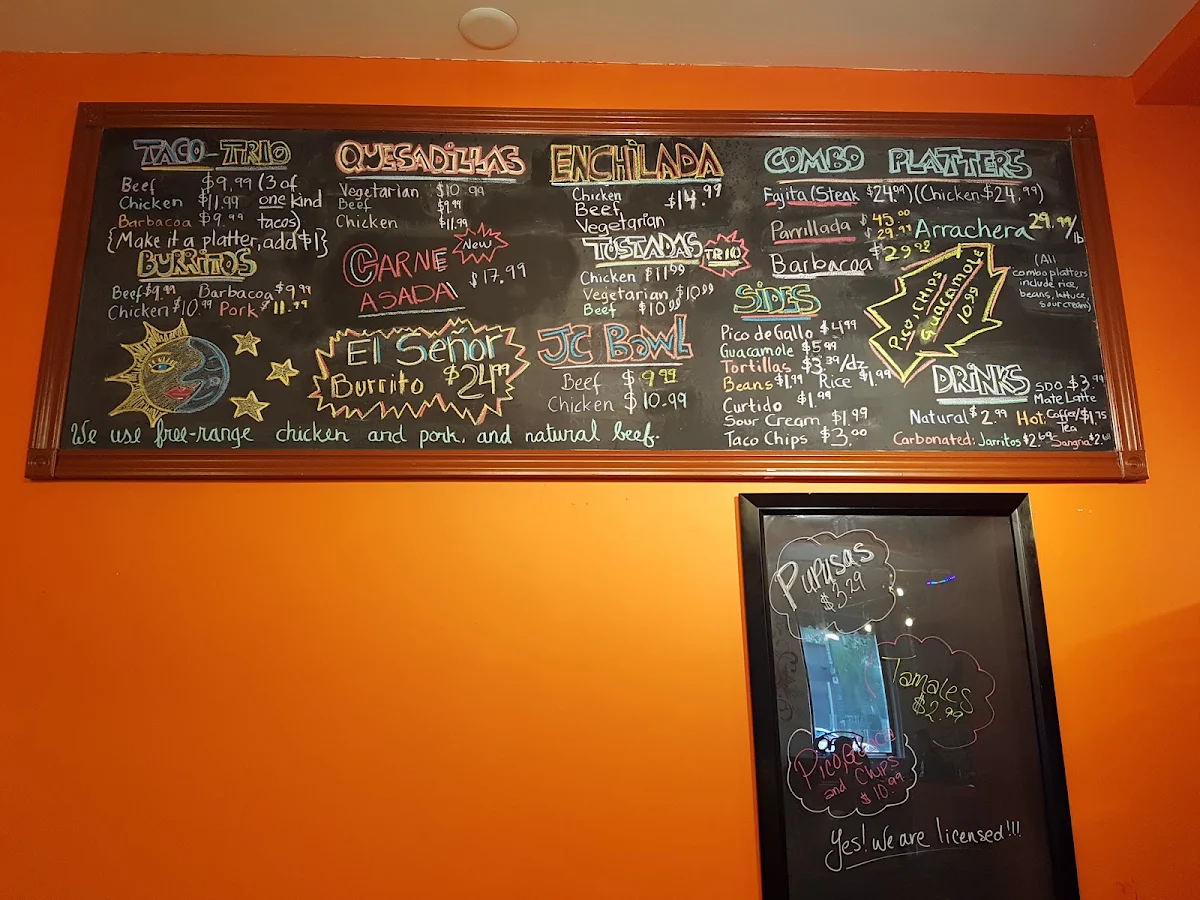 TACO-TRIO
Beef $9.99 (3 of
Chicken $11.99 one kind
Barbacoa $9.99 tacos)
{Make it a platter, add $1}
BURRITOS
Beef $9.99 Barbacoa $9.99
Chicken $10.99 Pork $11.99
QUESADILLAS
Vegetarian $10.99
Beef $9.99
Chicken $11.99
CARNE ASADA
New
$17.99
El Señor
Burrito $24.99
ENCHILADA
Chicken
Beef $14.99
Vegetarian
TOSTADAS TRIO
Chicken $11.99
Vegetarian $10.99
Beef $10.99
JC BOWL
Beef $9.99
Chicken $10.99
COMBO PLATTERS
Fajita (Steak $24.99) (Chicken $24.99)
Parrillada $45.00
$29.99
Arrachera 29.99/lb
Barbacoa $29.99
(All
combo platters
include rice,
beans, lettuce,
sour cream)
Pico, Chips
Guacamole
10.99
SIDES
Pico de Gallo $4.99
Guacamole $5.99
Tortillas $3.39/dz
Beans $1.99 Rice $1.99
Curtido $1.99
Sour Cream $1.99
Taco Chips $3.00
DRINKS
SDO $3.99
Mate Latte
Natural $2.99 Hot: Coffee/Tea $1.75
Carbonated: Jarritos $2.69 Sangria
We use free-range chicken and pork, and natural beef.
Pupusas
$3.29
Tamales
$2.99
Pico, Guaca
and Chips
$10.99
Yes! We are licensed!!!